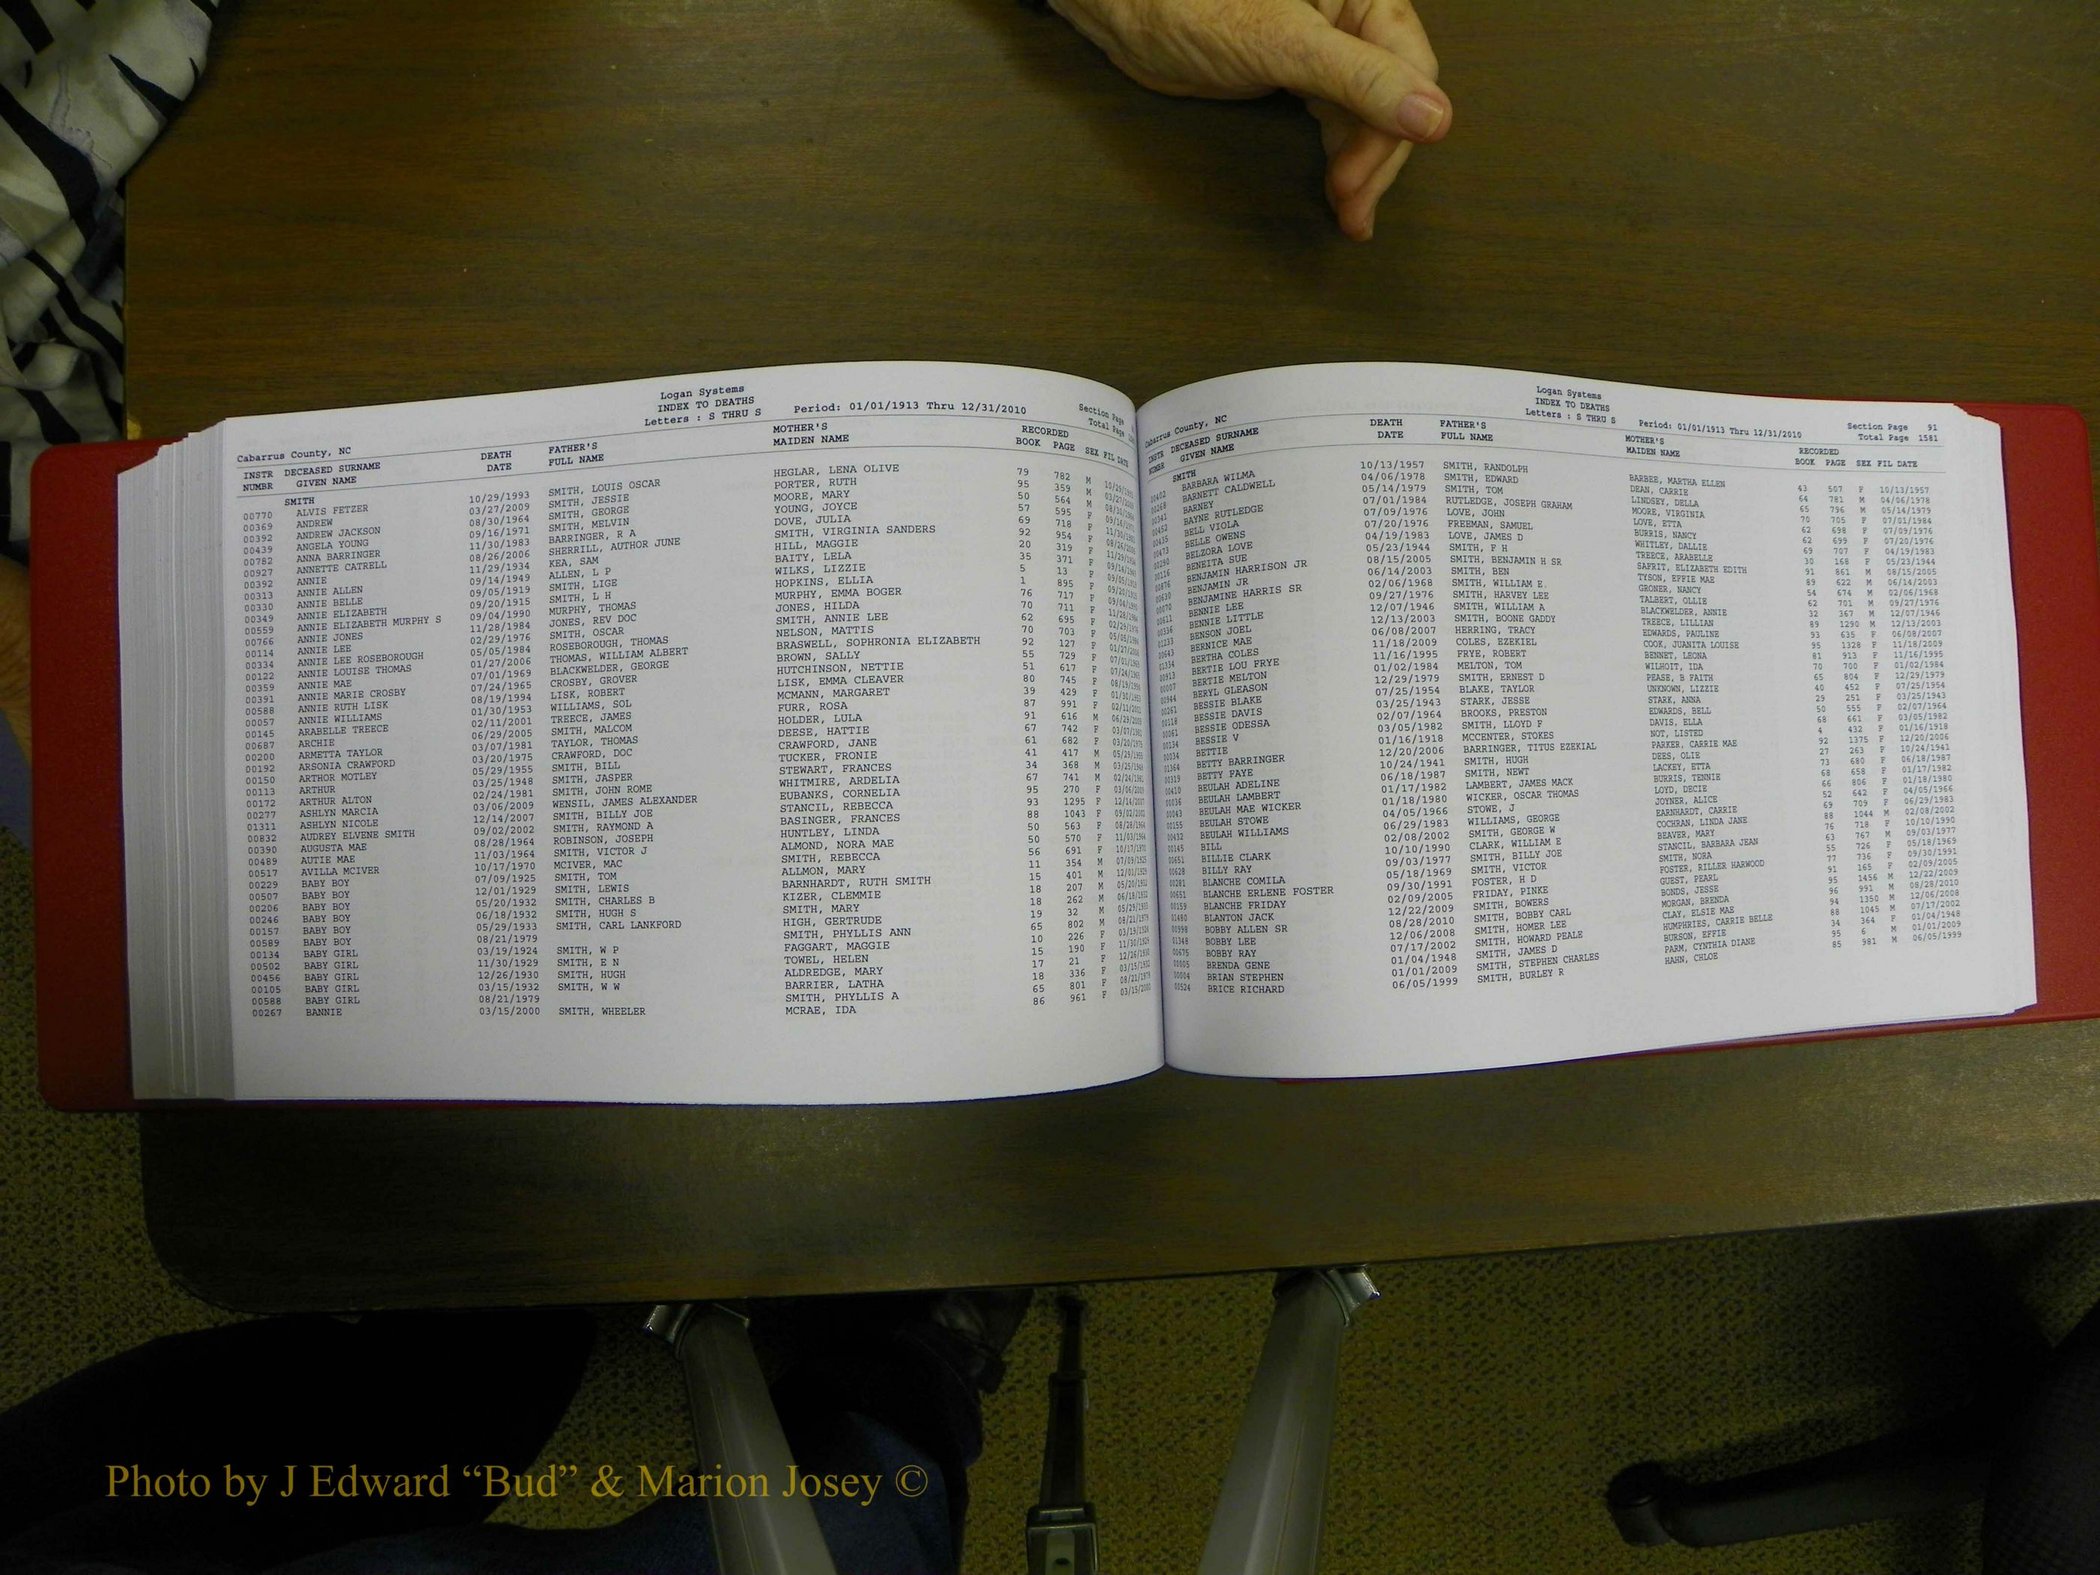 Logan Systems
INDEX TO DEATHS
Letters : S THRU S Period: 01/01/1913 Thru 12/31/2010
Section Page
Total Page
Cabarrus County, NC
INSTR DECEASED SURNAME DEATH FATHER'S MOTHER'S RECORDED
NUMBR GIVEN NAME DATE FULL NAME MAIDEN NAME BOOK PAGE SEX FIL DATE
SMITH
00770 ALVIS FETZER 10/29/1993 SMITH, LOUIS OSCAR HEGLAR, LENA OLIVE 79 782 M 10/29/1993
00369 ANDREW 03/27/2009 SMITH, JESSIE PORTER, RUTH 95 359 M 03/27/2009
00392 ANDREW JACKSON 08/30/1964 SMITH, GEORGE MOORE, MARY 50 564 M
00439 ANGELA YOUNG 09/16/1971 SMITH, MELVIN YOUNG, JOYCE 57 595 F
00782 ANNA BARRINGER 11/30/1983 BARRINGER, R A DOVE, JULIA 69 718 F
00927 ANNETTE CATRELL 08/26/2006 SHERRILL, AUTHOR JUNE SMITH, VIRGINIA SANDERS 92 954 F
00392 ANNIE 11/29/1934 KEA, SAM HILL, MAGGIE 20 319 F
00313 ANNIE ALLEN 09/14/1949 ALLEN, L P BAITY, LELA 35 371 F
00330 ANNIE BELLE 09/05/1919 SMITH, LIGE WILKS, LIZZIE 5 13 F
00349 ANNIE ELIZABETH 09/20/1915 SMITH, L H HOPKINS, ELLIA 1 895 F
00559 ANNIE ELIZABETH MURPHY S 09/04/1990 MURPHY, THOMAS MURPHY, EMMA BOGER 76 717 F
00766 ANNIE JONES 11/28/1984 JONES, REV DOC JONES, HILDA 70 711 F
00114 ANNIE LEE 02/29/1976 SMITH, OSCAR SMITH, ANNIE LEE 62 695 F
00334 ANNIE LEE ROSEBOROUGH 05/05/1984 ROSEBOROUGH, THOMAS NELSON, MATTIS 70 703 F
00122 ANNIE LOUISE THOMAS 01/27/2006 THOMAS, WILLIAM ALBERT BRASWELL, SOPHRONIA ELIZABETH 92 127 F
00359 ANNIE MAE 07/01/1969 BLACKWELDER, GEORGE BROWN, SALLY 55 729 F
00391 ANNIE MARIE CROSBY 07/24/1965 CROSBY, GROVER HUTCHINSON, NETTIE 51 617 F
00588 ANNIE RUTH LISK 08/19/1994 LISK, ROBERT LISK, EMMA CLEAVER 80 745 F
00057 ANNIE WILLIAMS 01/30/1953 WILLIAMS, SOL MCMANN, MARGARET 39 429 F
00145 ARABELLE TREECE 02/11/2001 TREECE, JAMES FURR, ROSA 87 991 F
00687 ARCHIE 06/29/2005 SMITH, MALCOM HOLDER, LULA 91 616 M
00200 ARMETTA TAYLOR 03/07/1981 TAYLOR, THOMAS DEESE, HATTIE 67 742 F
00192 ARSONIA CRAWFORD 03/20/1975 CRAWFORD, DOC CRAWFORD, JANE 61 682 F
00150 ARTHOR MOTLEY 05/29/1955 SMITH, BILL TUCKER, FRONIE 41 417 M
00113 ARTHUR 03/25/1948 SMITH, JASPER STEWART, FRANCES 34 368 M
00172 ARTHUR ALTON 02/24/1981 SMITH, JOHN ROME WHITMIRE, ARDELIA 67 741 M
00277 ASHLYN MARCIA 03/06/2009 WENSIL, JAMES ALEXANDER EUBANKS, CORNELIA 95 270 F
01311 ASHLYN NICOLE 12/14/2007 SMITH, BILLY JOE STANCIL, REBECCA 93 1295 F
00832 AUDREY ELVENE SMITH 09/02/2002 SMITH, RAYMOND A BASINGER, FRANCES 88 1043 F
00390 AUGUSTA MAE 08/28/1964 ROBINSON, JOSEPH HUNTLEY, LINDA 50 563 F
00489 AUTIE MAE 11/03/1964 SMITH, VICTOR J ALMOND, NORA MAE 50 570 F
00517 AVILLA MCIVER 10/17/1970 MCIVER, MAC SMITH, REBECCA 56 691 F
00229 BABY BOY 07/09/1925 SMITH, TOM ALLMON, MARY 11 354 M
00507 BABY BOY 12/01/1929 SMITH, LEWIS BARNHARDT, RUTH SMITH 15 401 M
00206 BABY BOY 05/20/1932 SMITH, CHARLES B KIZER, CLEMMIE 18 207 M
00246 BABY BOY 06/18/1932 SMITH, HUGH S SMITH, MARY 18 262 M
00157 BABY BOY 05/29/1933 SMITH, CARL LANKFORD HIGH, GERTRUDE 19 32 M
00589 BABY BOY 08/21/1979 SMITH, PHYLLIS ANN 65 802 M
00134 BABY GIRL 03/19/1924 SMITH, W P FAGGART, MAGGIE 10 226 F
00502 BABY GIRL 11/30/1929 SMITH, E N TOWEL, HELEN 15 190 F
00456 BABY GIRL 12/26/1930 SMITH, HUGH ALDREDGE, MARY 17 21 F
00105 BABY GIRL 03/15/1932 SMITH, W W BARRIER, LATHA 18 336 F
00588 BABY GIRL 08/21/1979 SMITH, PHYLLIS A 65 801 F
00267 BANNIE 03/15/2000 SMITH, WHEELER MCRAE, IDA 86 961 F
Logan Systems
INDEX TO DEATHS
Letters : S THRU S Period: 01/01/1913 Thru 12/31/2010
Section Page 91
Total Page 1581
Cabarrus County, NC
INSTR DECEASED SURNAME DEATH FATHER'S MOTHER'S RECORDED
NUMBR GIVEN NAME DATE FULL NAME MAIDEN NAME BOOK PAGE SEX FIL DATE
SMITH
00402 BARBARA WILMA 10/13/1957 SMITH, RANDOLPH BARBEE, MARTHA ELLEN 43 507 F 10/13/1957
00268 BARNETT CALDWELL 04/06/1978 SMITH, EDWARD DEAN, CARRIE 64 781 M 04/06/1978
00341 BARNEY 05/14/1979 SMITH, TOM LINDSEY, DELLA 65 796 M 05/14/1979
00452 BAYNE RUTLEDGE 07/01/1984 RUTLEDGE, JOSEPH GRAHAM MOORE, VIRGINIA 70 705 F 07/01/1984
00435 BELL VIOLA 07/09/1976 LOVE, JOHN LOVE, ETTA 62 698 F 07/09/1976
00473 BELLE OWENS 07/20/1976 FREEMAN, SAMUEL BURRIS, NANCY 62 699 F 07/20/1976
00290 BELZORA LOVE 04/19/1983 LOVE, JAMES D WHITLEY, DALLIE 69 707 F 04/19/1983
00116 BENEITA SUE 05/23/1944 SMITH, F H TREECE, ARABELLE 30 168 F 05/23/1944
00876 BENJAMIN HARRISON JR 08/15/2005 SMITH, BENJAMIN H SR SAFRIT, ELIZABETH EDITH 91 861 M 08/15/2005
00630 BENJAMIN JR 06/14/2003 SMITH, BEN TYSON, EFFIE MAE 89 622 M 06/14/2003
00070 BENJAMINE HARRIS SR 02/06/1968 SMITH, WILLIAM E. GRONER, NANCY 54 674 M 02/06/1968
00611 BENNIE LEE 09/27/1976 SMITH, HARVEY LEE TALBERT, OLLIE 62 701 M 09/27/1976
00336 BENNIE LITTLE 12/07/1946 SMITH, WILLIAM A BLACKWELDER, ANNIE 32 367 M 12/07/1946
01233 BENSON JOEL 12/13/2003 SMITH, BOONE GADDY TREECE, LILLIAN 89 1290 M 12/13/2003
00643 BERNICE MAE 06/08/2007 HERRING, TRACY EDWARDS, PAULINE 93 635 F 06/08/2007
01334 BERTHA COLES 11/18/2009 COLES, EZEKIEL COOK, JUANITA LOUISE 95 1328 F 11/18/2009
BERTIE LOU FRYE 11/16/1995 FRYE, ROBERT BENNET, LEONA 81 913 F 11/16/1995
00007 BERTIE MELTON 01/02/1984 MELTON, TOM WILHOIT, IDA 70 700 F 01/02/1984
00944 BERYL GLEASON 12/29/1979 SMITH, ERNEST D PEASE, B FAITH 65 804 F 12/29/1979
00261 BESSIE BLAKE 07/25/1954 BLAKE, TAYLOR UNKNOWN, LIZZIE 40 452 F 07/25/1954
00118 BESSIE DAVIS 03/25/1943 STARK, JESSE STARK, ANNA 29 251 F 03/25/1943
00061 BESSIE ODESSA 02/07/1964 BROOKS, PRESTON EDWARDS, BELL 50 555 F 02/07/1964
00134 BESSIE V 03/05/1982 SMITH, LLOYD F DAVIS, ELLA 68 661 F 03/05/1982
00034 BETTIE 01/16/1918 MCCENTER, STOKES NOT, LISTED 4 432 F 01/16/1918
01364 BETTY BARRINGER 12/20/2006 BARRINGER, TITUS EZEKIAL PARKER, CARRIE MAE 92 1375 F 12/20/2006
00319 BETTY FAYE 10/24/1941 SMITH, HUGH DEES, OLIE 27 263 F 10/24/1941
00410 BEULAH ADELINE 06/18/1987 SMITH, NEWT LACKEY, ETTA 73 680 F 06/18/1987
00036 BEULAH LAMBERT 01/17/1982 LAMBERT, JAMES MACK BURRIS, TENNIE 68 658 F 01/17/1982
00043 BEULAH MAE WICKER 01/18/1980 WICKER, OSCAR THOMAS LOYD, DECIE 66 806 F 01/18/1980
00155 BEULAH STOWE 04/05/1966 STOWE, J JOYNER, ALICE 52 642 F 04/05/1966
00432 BEULAH WILLIAMS 06/29/1983 WILLIAMS, GEORGE EARNHARDT, CARRIE 69 709 F 06/29/1983
00145 BILL 02/08/2002 SMITH, GEORGE W COCHRAN, LINDA JANE 88 1044 M 02/08/2002
00651 BILLIE CLARK 10/10/1990 CLARK, WILLIAM E BEAVER, MARY 76 718 F 10/10/1990
00628 BILLY RAY 09/03/1977 SMITH, BILLY JOE STANCIL, BARBARA JEAN 63 767 M 09/03/1977
00281 BLANCHE COMILA 05/18/1969 SMITH, VICTOR SMITH, NORA 55 726 F 05/18/1969
00651 BLANCHE ERLENE FOSTER 09/30/1991 FOSTER, H D FOSTER, RILLER HARWOOD 77 736 F 09/30/1991
00159 BLANCHE FRIDAY 02/09/2005 FRIDAY, PINKE GUEST, PEARL 91 165 F 02/09/2005
01490 BLANTON JACK 12/22/2009 SMITH, BOWERS BONDS, JESSE 95 1456 M 12/22/2009
00998 BOBBY ALLEN SR 08/28/2010 SMITH, BOBBY CARL MORGAN, BRENDA 96 991 M 08/28/2010
01348 BOBBY LEE 12/06/2008 SMITH, HOMER LEE CLAY, ELSIE MAE 94 1350 M 12/06/2008
00675 BOBBY RAY 07/17/2002 SMITH, HOWARD PEALE HUMPHRIES, CARRIE BELLE 88 1045 M 07/17/2002
00005 BRENDA GENE 01/04/1948 SMITH, JAMES D BURSON, EFFIE 34 364 F 01/04/1948
00004 BRIAN STEPHEN 01/01/2009 SMITH, STEPHEN CHARLES PARM, CYNTHIA DIANE 95 6 M 01/01/2009
00524 BRICE RICHARD 06/05/1999 SMITH, BURLEY R HAHN, CHLOE 85 981 M 06/05/1999
Photo by J Edward “Bud” & Marion Josey ©